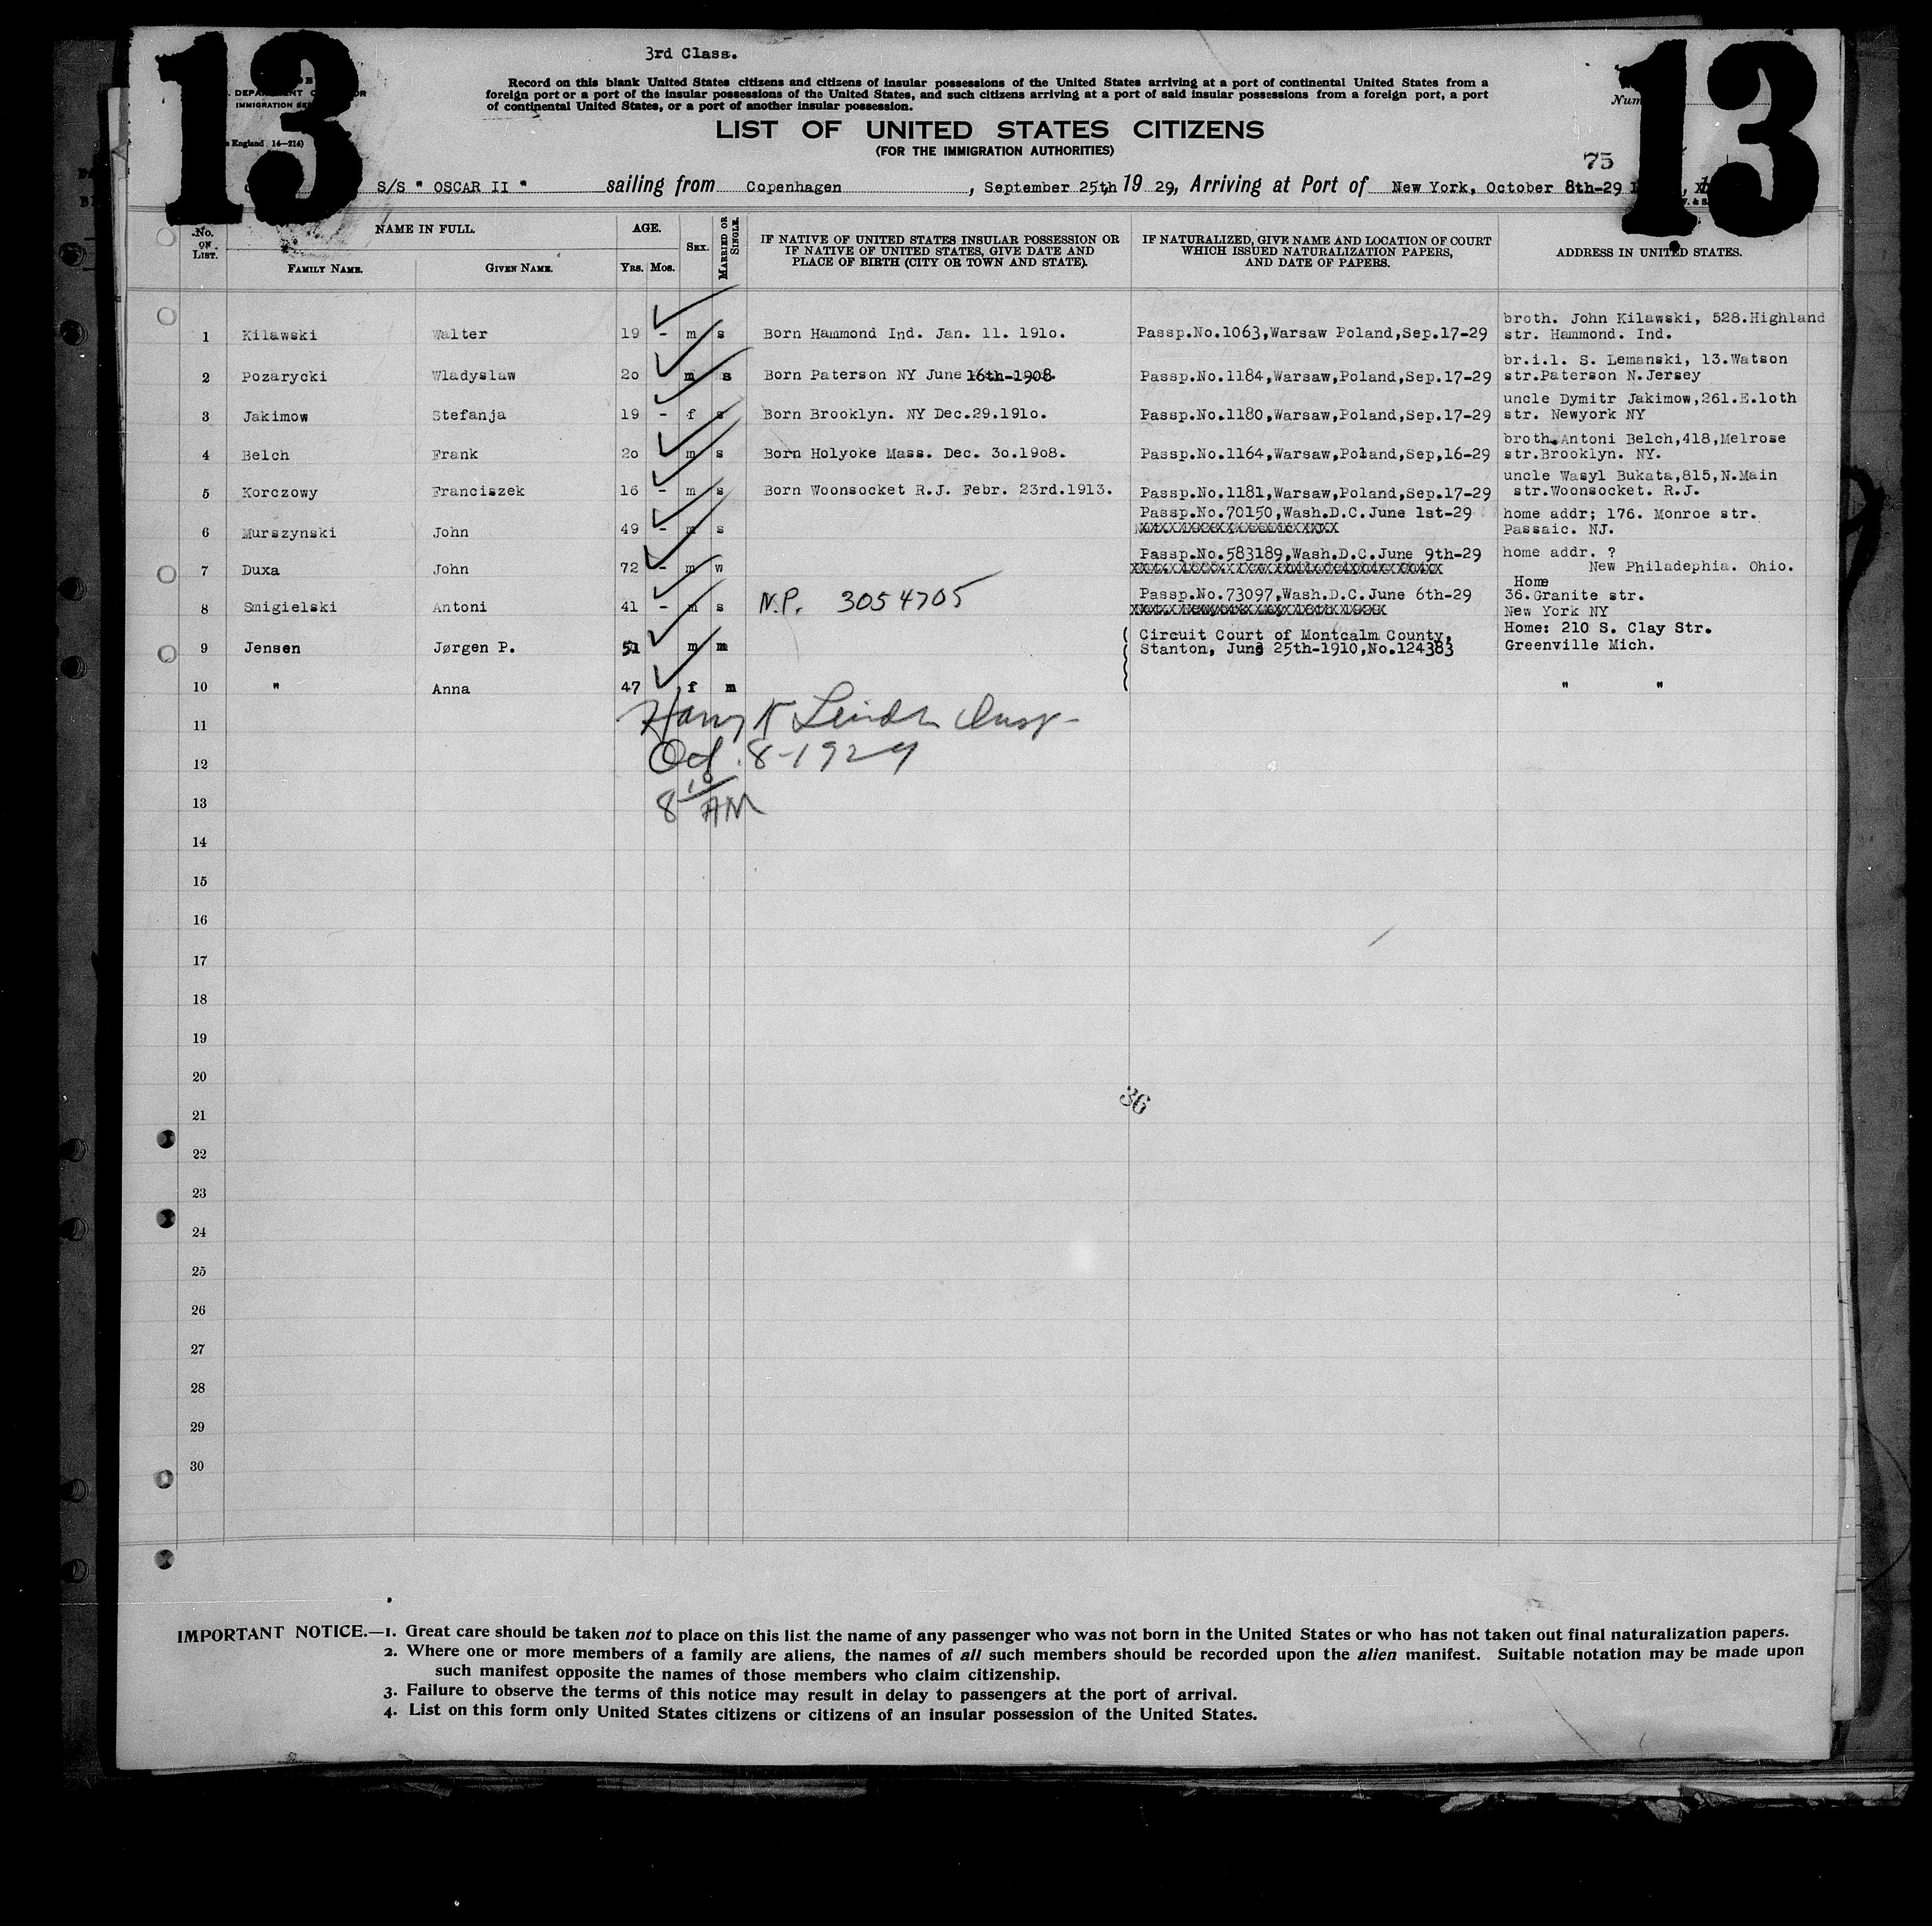 13
13
3rd Class.
Record on this blank United States citizens and citizens of insular possessions of the United States arriving at a port of continental United States from a
foreign port or a port of the insular possessions of the United States, and such citizens arriving at a port of said insular possessions from a foreign port, a port
of continental United States, or a port of another insular possession.
IMMIGRATION
England. 14-214)
LIST OF UNITED STATES CITIZENS
(FOR THE IMMIGRATION AUTHORITIES)
75
S/S " OSCAR II " sailing from Copenhagen, September 25th 19 29, Arriving at Port of New York, October 8th-29
No. ON LIST. NAME IN FULL. AGE. SEX. MARRIED OR SINGLE. IF NATIVE OF UNITED STATES INSULAR POSSESSION OR IF NATIVE OF UNITED STATES, GIVE DATE AND PLACE OF BIRTH (CITY OR TOWN AND STATE). IF NATURALIZED, GIVE NAME AND LOCATION OF COURT WHICH ISSUED NATURALIZATION PAPERS, AND DATE OF PAPERS. ADDRESS IN UNITED STATES.
FAMILY NAME. GIVEN NAME. YRS. MOS.
broth. John Kilawski, 528.Highland
1 Kilawski Walter 19 - m s Born Hammond Ind. Jan. 11. 191o. Passp.No.1063,Warsaw Poland,Sep.17-29 str. Hammond. Ind.
br.i.l. S. Lemanski, 13.Watson
2 Pozarycki Wladyslaw 2o m s Born Paterson NY June 16th-1908. Passp.No.1184,Warsaw,Poland,Sep.17-29 str.Paterson N.Jersey
uncle Dymitr Jakimow,261.E.1oth
3 Jakimow Stefanja 19 - f s Born Brooklyn. NY Dec.29.191o. Passp.No.1180,Warsaw,Poland,Sep.17-29 str. Newyork NY
broth.Antoni Belch,418,Melrose
4 Belch Frank 2o - m s Born Holyoke Mass. Dec. 3o.19o8. Passp.No.1164,Warsaw,Poland,Sep,16-29 str.Brooklyn. NY.
uncle Wasyl Bukata,815,N.Main
5 Korczowy Franciszek 16 - m s Born Woonsocket R.J. Febr. 23rd.1913. Passp.No.1181,Warsaw,Poland,Sep.17-29 str.Woonsocket. R.J.
Passp.No.70150,Wash.D.C.June 1st-29 home addr; 176. Monroe str.
6 Murszynski John 49 - m s Passaic. NJ.
Passp.No.583189,Wash.D.C.June 9th-29 home addr. ?
7 Duxa John 72 - m w New Philadephia. Ohio.
Home
Passp.No.73097,Wash.D.C.June 6th-29 36.Granite str.
8 Smigielski Antoni 41 - m s N.P. 3054705 New York NY
Circuit Court of Montcalm County, Home: 210 S. Clay Str.
9 Jensen Jørgen P. 51 m m Stanton, June 25th-1910,No.124383 Greenville Mich.
10 " Anna 47 f m " "
11 Harry
12 Oct. 8-1929
13 8 10 AM
14
15
16
17
18
19
20
21
36
22
23
24
25
26
27
28
29
30
IMPORTANT NOTICE.—1. Great care should be taken not to place on this list the name of any passenger who was not born in the United States or who has not taken out final naturalization papers.
2. Where one or more members of a family are aliens, the names of all such members should be recorded upon the alien manifest. Suitable notation may be made upon
such manifest opposite the names of those members who claim citizenship.
3. Failure to observe the terms of this notice may result in delay to passengers at the port of arrival.
4. List on this form only United States citizens or citizens of an insular possession of the United States.